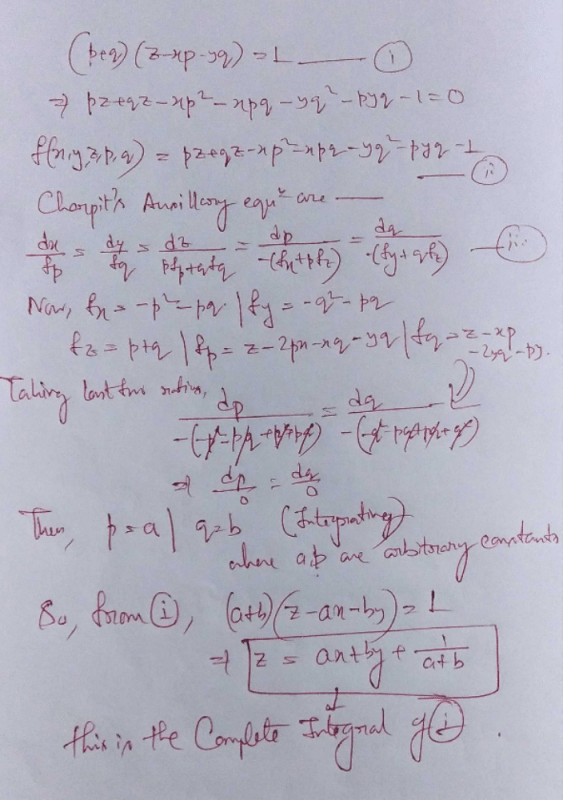 (p+q)(z-xp-yq)=1 —— (i)
⇒ pz+qz-xp²-xpq-yq²-pyq-1=0
f(x,y,z,p,q) = pz+qz-xp²-xpq-yq²-pyq-1
—— (ii)
Charpit's Auxillary equⁿ are ——
dx/fp = dy/fq = dz/(pfp+qfq) = dp/-(fx+pfz) = dq/-(fy+qfz) —— (iii)
Now, fx = -p²-pq | fy = -q²-pq
fz = p+q | fp = z-2px-xq-yq | fq = z-xp
-2yq-py.
Taking last two ratios,
dp/-(-p²-pq+p²+pq) = dq/-(-q²-pq+pq+q²)
⇒ dp/0 = dq/0
Then, p=a | q=b (Integrating)
where a,b are arbitrary constants
So, from (i), (a+b)(z-ax-by)=1
⇒ z = ax+by+ 1/(a+b)
this is the Complete Integral of (i).